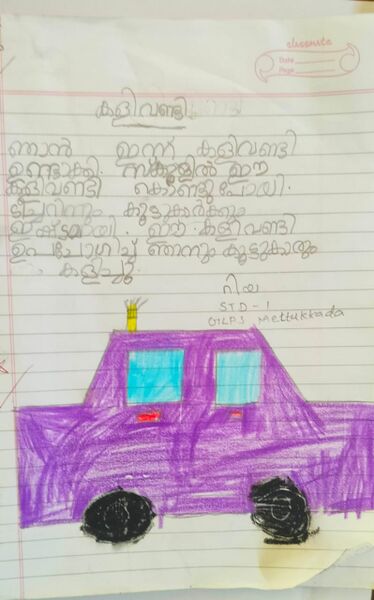 classmate
Date
Page
കളിവണ്ടി
ഞാൻ ഇന്ന് കളിവണ്ടി
ഉണ്ടാക്കി. സ്കൂളിൽ ഈ
കളിവണ്ടി കൊണ്ടുപോയി.
കൂട്ടുകാർക്കും
ഇഷ്ടമായി. ഈ കളിവണ്ടി
ഉപയോഗിച്ച് ഞാനും കൂട്ടുകാരും
കളിച്ചു.
നിയ
STD - 1
GLPS Mettukkada